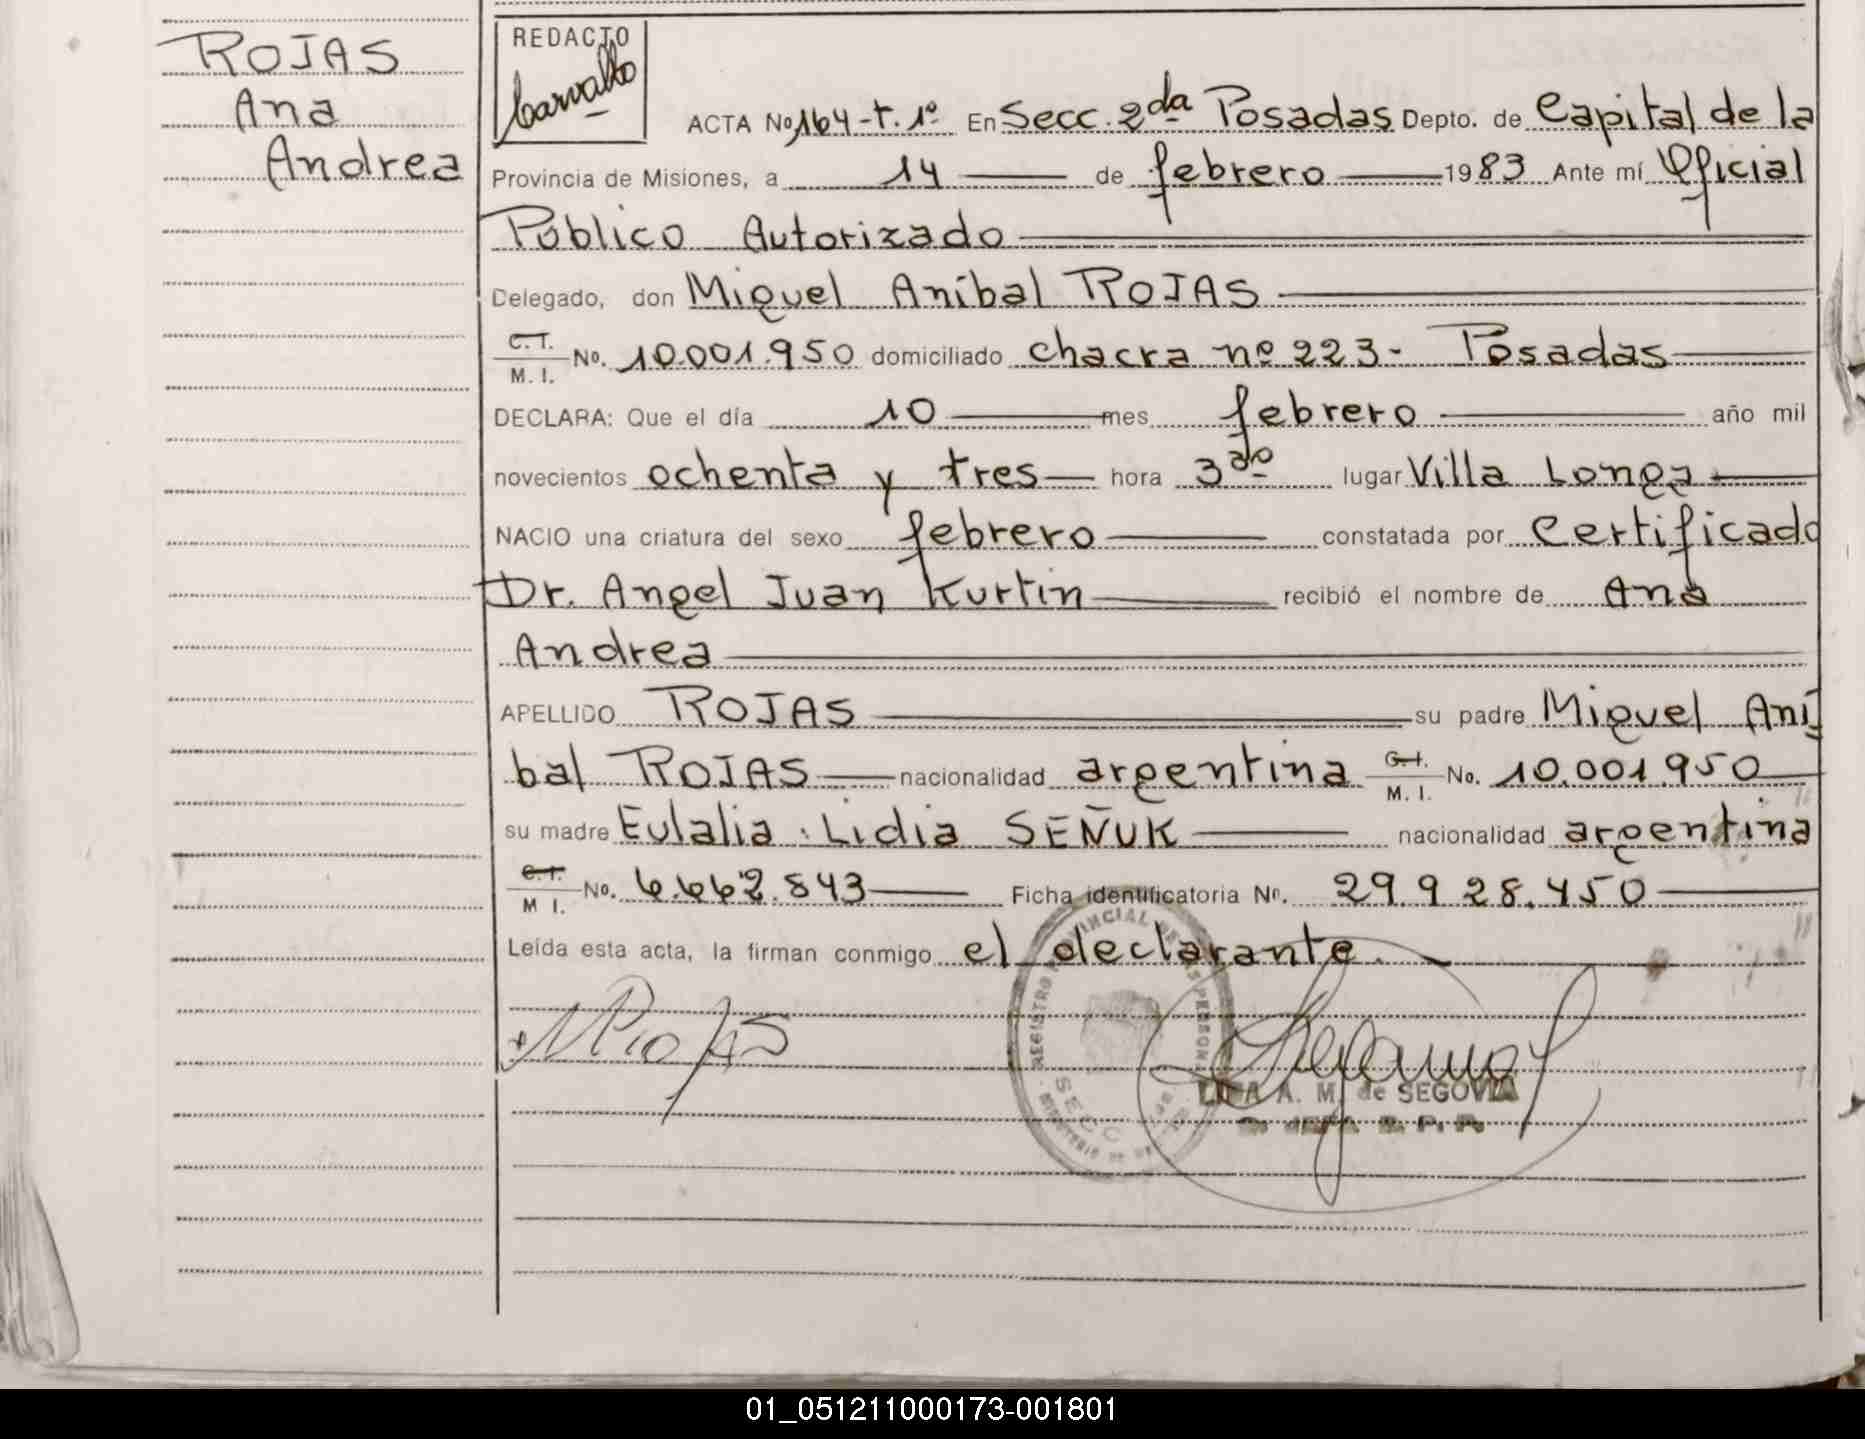 ROJAS
Ana
Andrea
REDACTO
Carvallo
ACTA No 164-t.1º En Secc. 2da Posadas Depto. de Capital de la
Provincia de Misiones, a 14 de febrero 1983 Ante mí Oficial
Público Autorizado
Delegado, don Miguel Aníbal ROJAS
C.I. M.I. No. 10.001.950 domiciliado chacra nº 223- Posadas
DECLARA: Que el día 10 mes febrero año mil
novecientos ochenta y tres hora 3do lugar Villa Longa
NACIO una criatura del sexo febrero constatada por Certificado
Dr. Angel Juan Kurtin recibió el nombre de Ana
Andrea
APELLIDO ROJAS su padre Miguel Aní
bal ROJAS nacionalidad argentina C.I. M.I. No. 10.001.950
su madre Eulalia Lidia SEÑUK nacionalidad argentina
C.I. M I. No. 6.662.843 Ficha identificatoria No. 29.928.450
Leída esta acta, la firman conmigo el declarante.
REGISTRO PROVINCIAL DE LAS PERSONAS
SECC
A. M. de SEGOVIA
R. P. P.
01_051211000173-001801